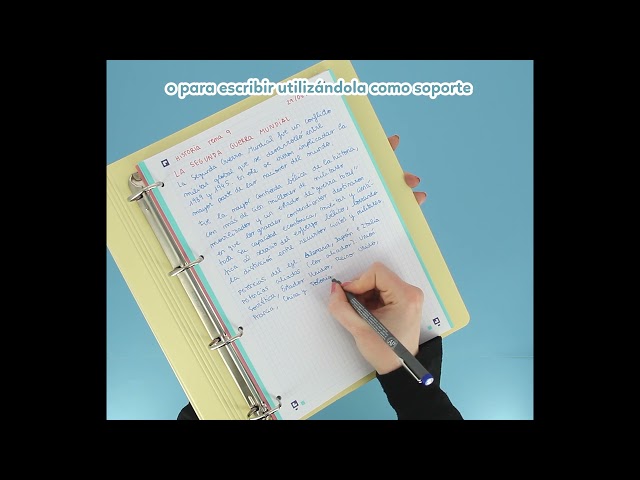 o para escribir utilizándola como soporte
HISTORIA TEMA 9
LA SEGUNDA GUERRA MUNDIAL
La Segunda Guerra Mundial fue un conflicto
militar global que se desarrolló entre
1939 y 1945. En ella se vieron implicadas la
mayor parte de las naciones del mundo.
Fue la mayor contienda bélica de la historia,
con más de cien millones de militares
movilizados y un estado de "guerra total"
en que los grandes contendientes destinaron
toda su capacidad económica, militar y
al servicio del esfuerzo bélico, borrando
la distinción entre recursos civiles y militares.
Potencias del eje: Alemania, Japón e Italia
Potencias aliadas (los aliados): Unión
Soviética, Estados Unidos, Reino Unido,
Francia, China y Polonia